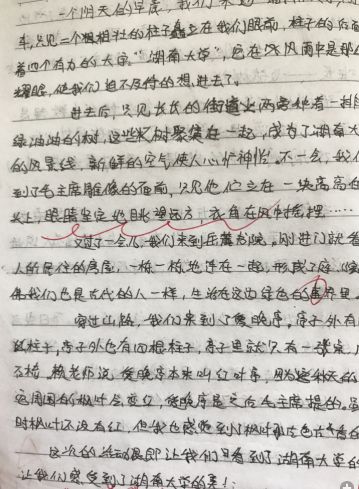 一个阴天的早晨,我们来到
车,只见二个粗粗壮的柱子矗立在我们眼前,柱子的后面
着四个有力的大字“湖南大学”,它在 风雨中是那么
耀眼,使我们迫不及待的想进去了。
进去后,只见长长的街道 两旁 着一排
绿油油的树,这些 树聚集在一起,成为了湖南大
的风景线,新鲜的空气使人心旷神怡。不一会,我们
到了毛主席雕像的面前,只见他伫立在一块高高
头上,眼睛坚定地眺望远方,衣角在风中摇摆……
又过了一会儿,我们来到岳麓书院。刚进门就看
人的居住的房屋,一栋一栋地连在一起,形成了
我们也是古代的人一样,生活在这边绿色的 里
穿过山路,我们来到了爱晚亭。亭子外有
柱子,亭子外也有四根柱子,亭子里就只有一张桌
石椅。 老师说,爱晚亭本来叫红叶亭,因为
周围的枫叶会变红,爱晚亭是 毛主席提的。
时枫叶还没有红,但我也感觉到了枫叶
这次的活动 让我们 看到了湖南大学的
让我们感受到了 的美!